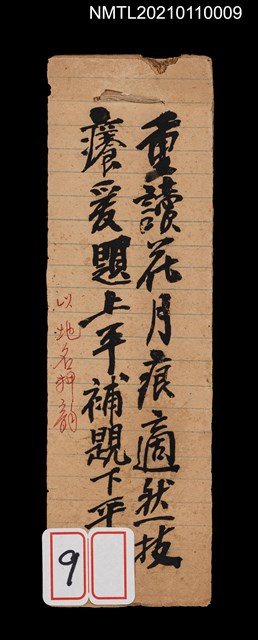 NMTL20210110009
重讀花月痕適然技
癢爰題上平補覞下平
以此名押韵
9